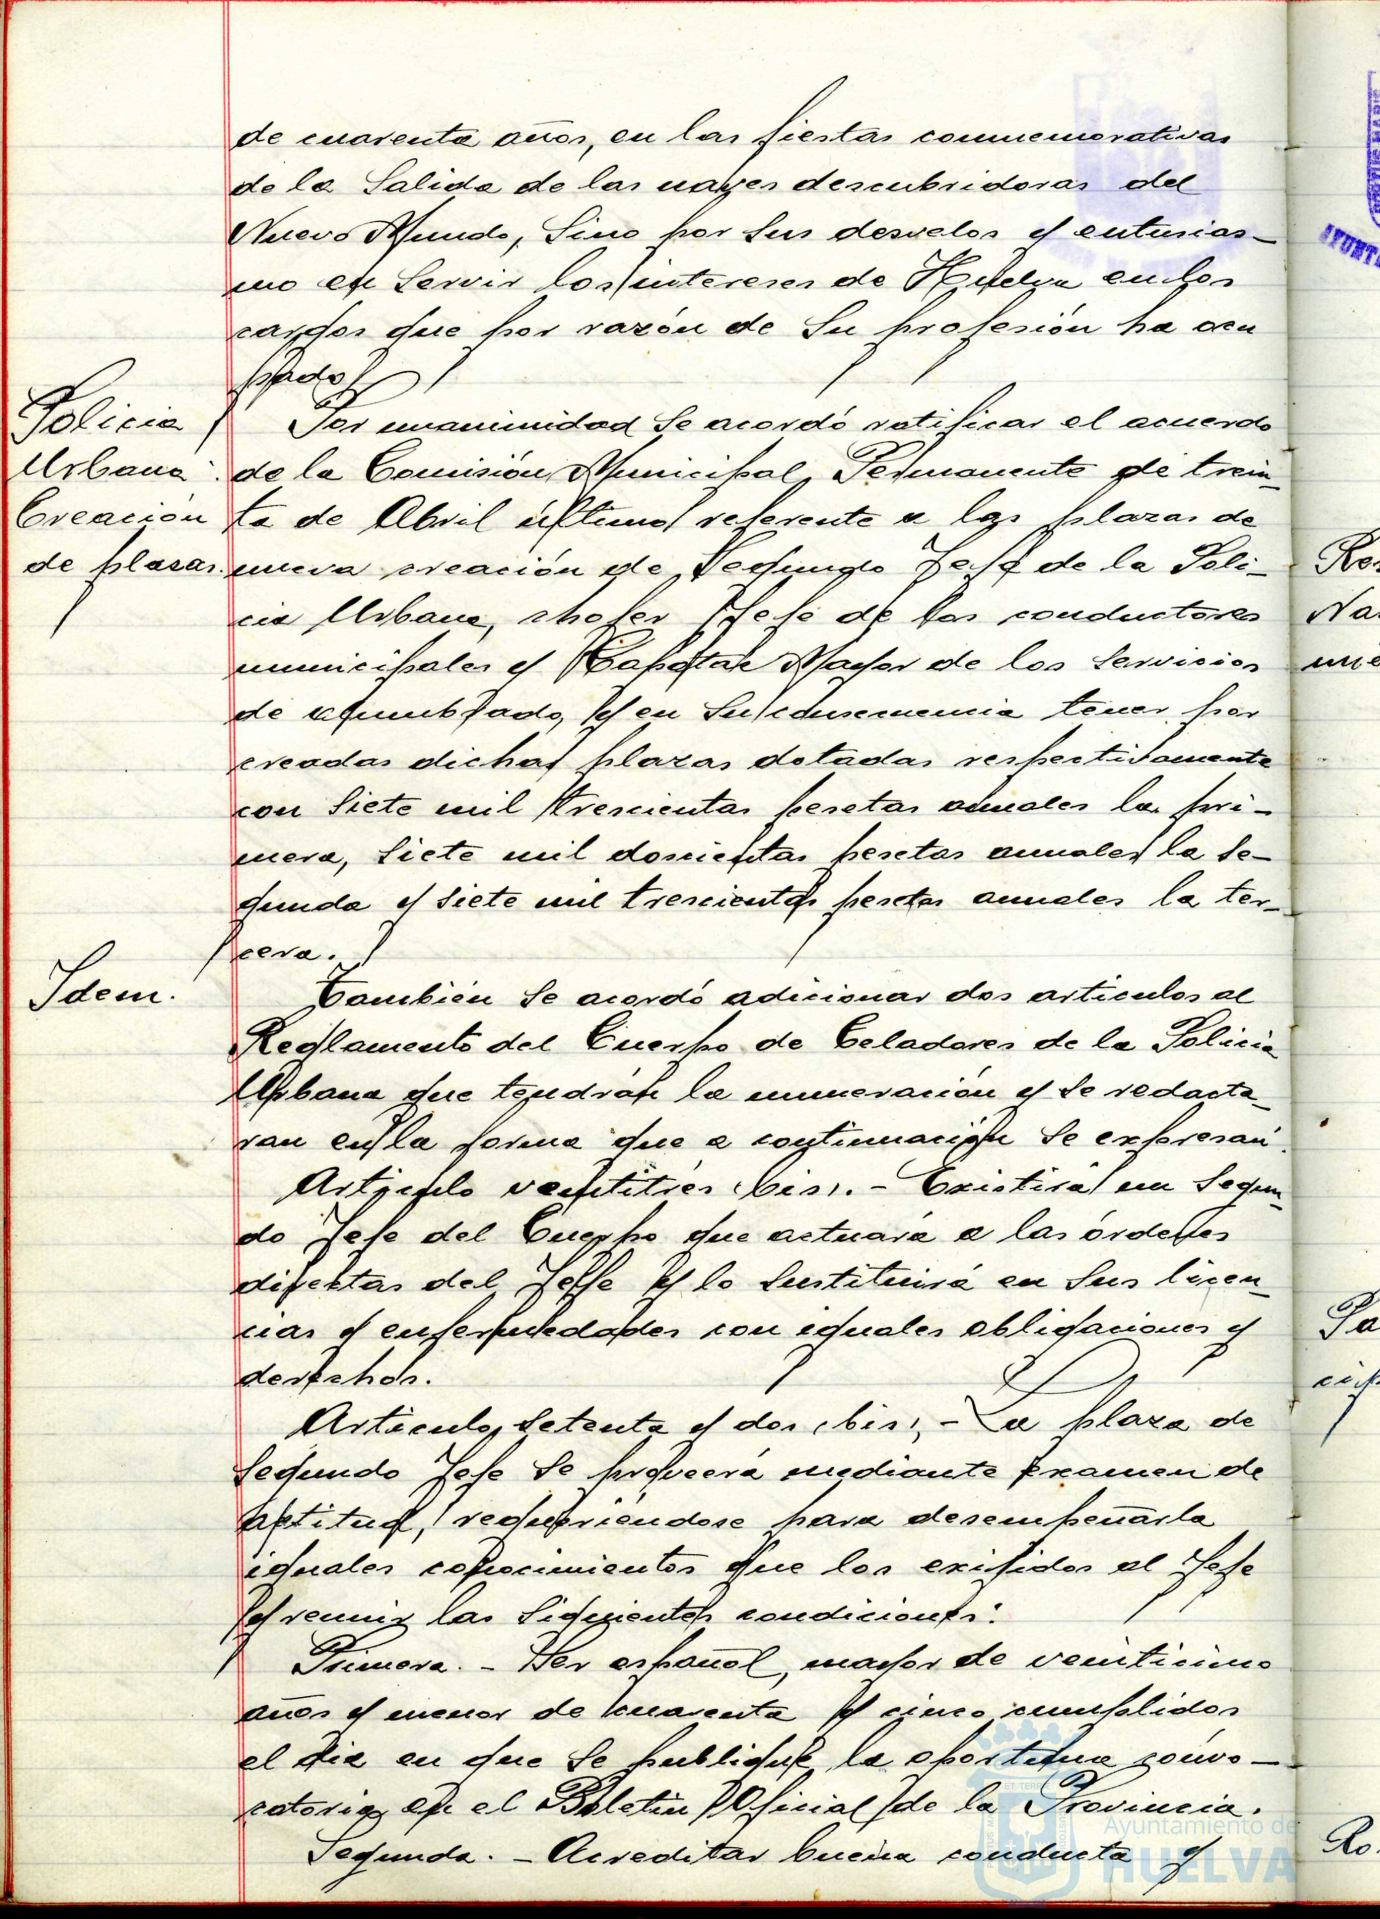 de cuarenta años, en las fiestas conmemorativas
de la Salida de las naves descubridoras del
Nuevo Mundo, Sino por Sus desvelos y entusias-
mo en Servir los intereses de Huelva en los
cargos que por razón de Su profesión ha ocu
pado.
Policia
Urbana.
Creación
de plazas.
Por unanimidad Se acordó ratificar el acuerdo
de la Comisión Municipal Permanente de trein-
ta de Abril último referente a las plazas de
nueva creación de Segundo Jefe de la Poli-
cia Urbana, chofer Jefe de los conductores
municipales y Capataz Mayor de los Servicios
de alumbrado, y en Su consecuencia tener por
creadas dichas plazas dotadas respectivamente
con Siete mil trescientas pesetas anuales la pri-
mera, Siete mil doscientas pesetas anuales la Se-
gunda y Siete mil trescientas pesetas anuales la ter-
cera.
Idem.
También Se acordó adicionar dos articulos al
Reglamento del Cuerpo de Celadores de la Policia
Urbana que tendrán la numeración y Se redacta-
ran en la forma que a continuación Se expresan.
Articulo veintitrés (bis).- Existirá un Segun-
do Jefe del Cuerpo que actuará a las órdenes
directas del Jefe y lo Sustituirá en Sus licen-
cias y enfermedades con iguales obligaciones y
derechos.
Articulo Setenta y dos (bis).- La plaza de
Segundo Jefe Se proveerá mediante examen de
aptitud, requiriéndose para desempeñarla
iguales conocimientos que los exigidos al Jefe
y reunir las Siguientes condiciones:
Primera.- Ser español, mayor de veinticinco
años y menor de cuarenta y cinco cumplidos
el dia en que Se publique la oportuna convo-
catoria en el Boletin Oficial de la Provincia.
Segunda.- Acreditar buena conducta y
Ayuntamiento de
HUELVA